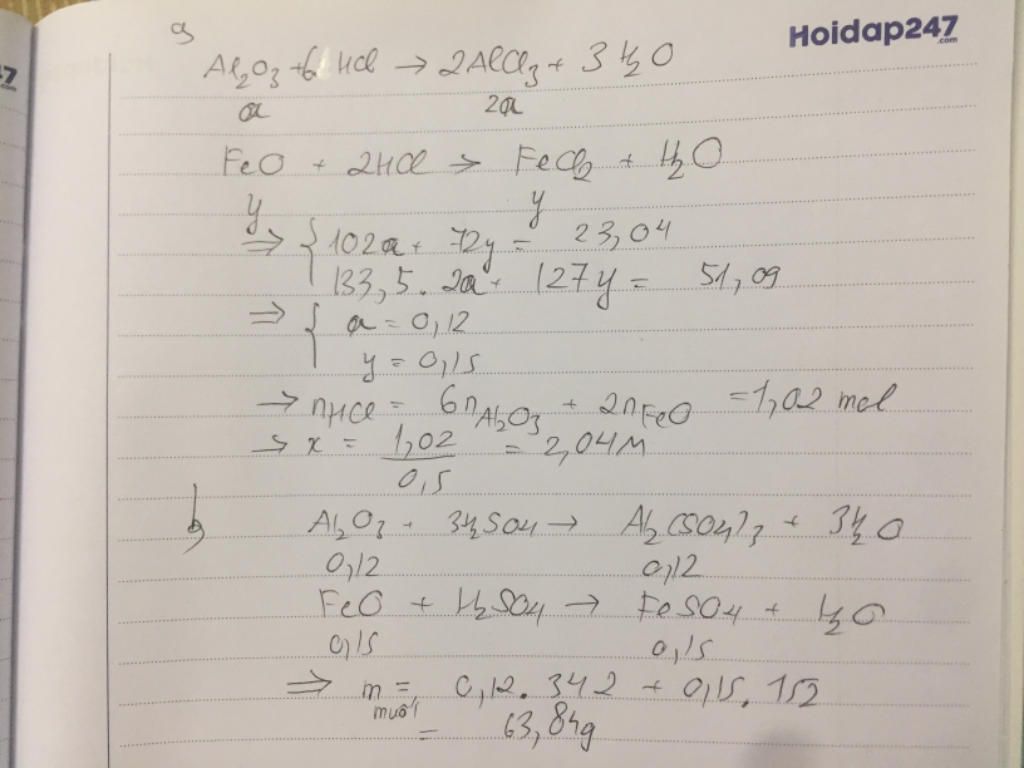 Hoidap247
.com
7
a,
Al₂O₃ + 6 HCl → 2AlCl₃ + 3 H₂O
a 2a
FeO + 2HCl → FeCl₂ + H₂O
y y
⇒ { 102a + 72y = 23,04
133,5 . 2a + 127y = 51,09
⇒ { a = 0,12
y = 0,15
→ nHCl = 6nAl₂O₃ + 2nFeO = 1,02 mol
→ x = 1,02 / 0,5 = 2,04M
b,
Al₂O₃ + 3H₂SO₄ → Al₂(SO₄)₃ + 3H₂O
0,12 0,12
FeO + H₂SO₄ → FeSO₄ + H₂O
0,15 0,15
⇒ m muối = 0,12 . 342 + 0,15 . 152
= 63,84g